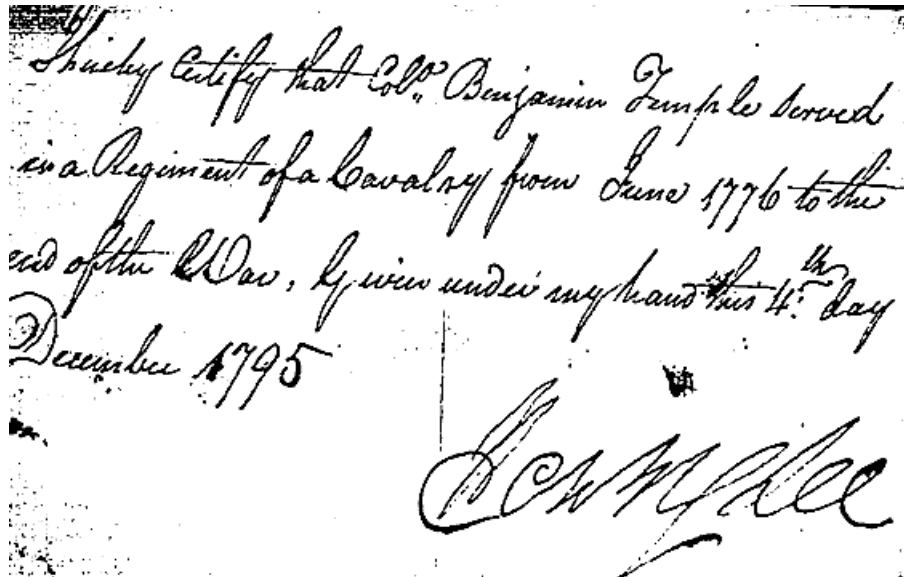 I hereby Certify that Colo. Benjamin Temple served
in a Regiment of a Cavalry from June 1776 to the
end of the War, Given under my hand this 4th day
December 1795
Henry Lee